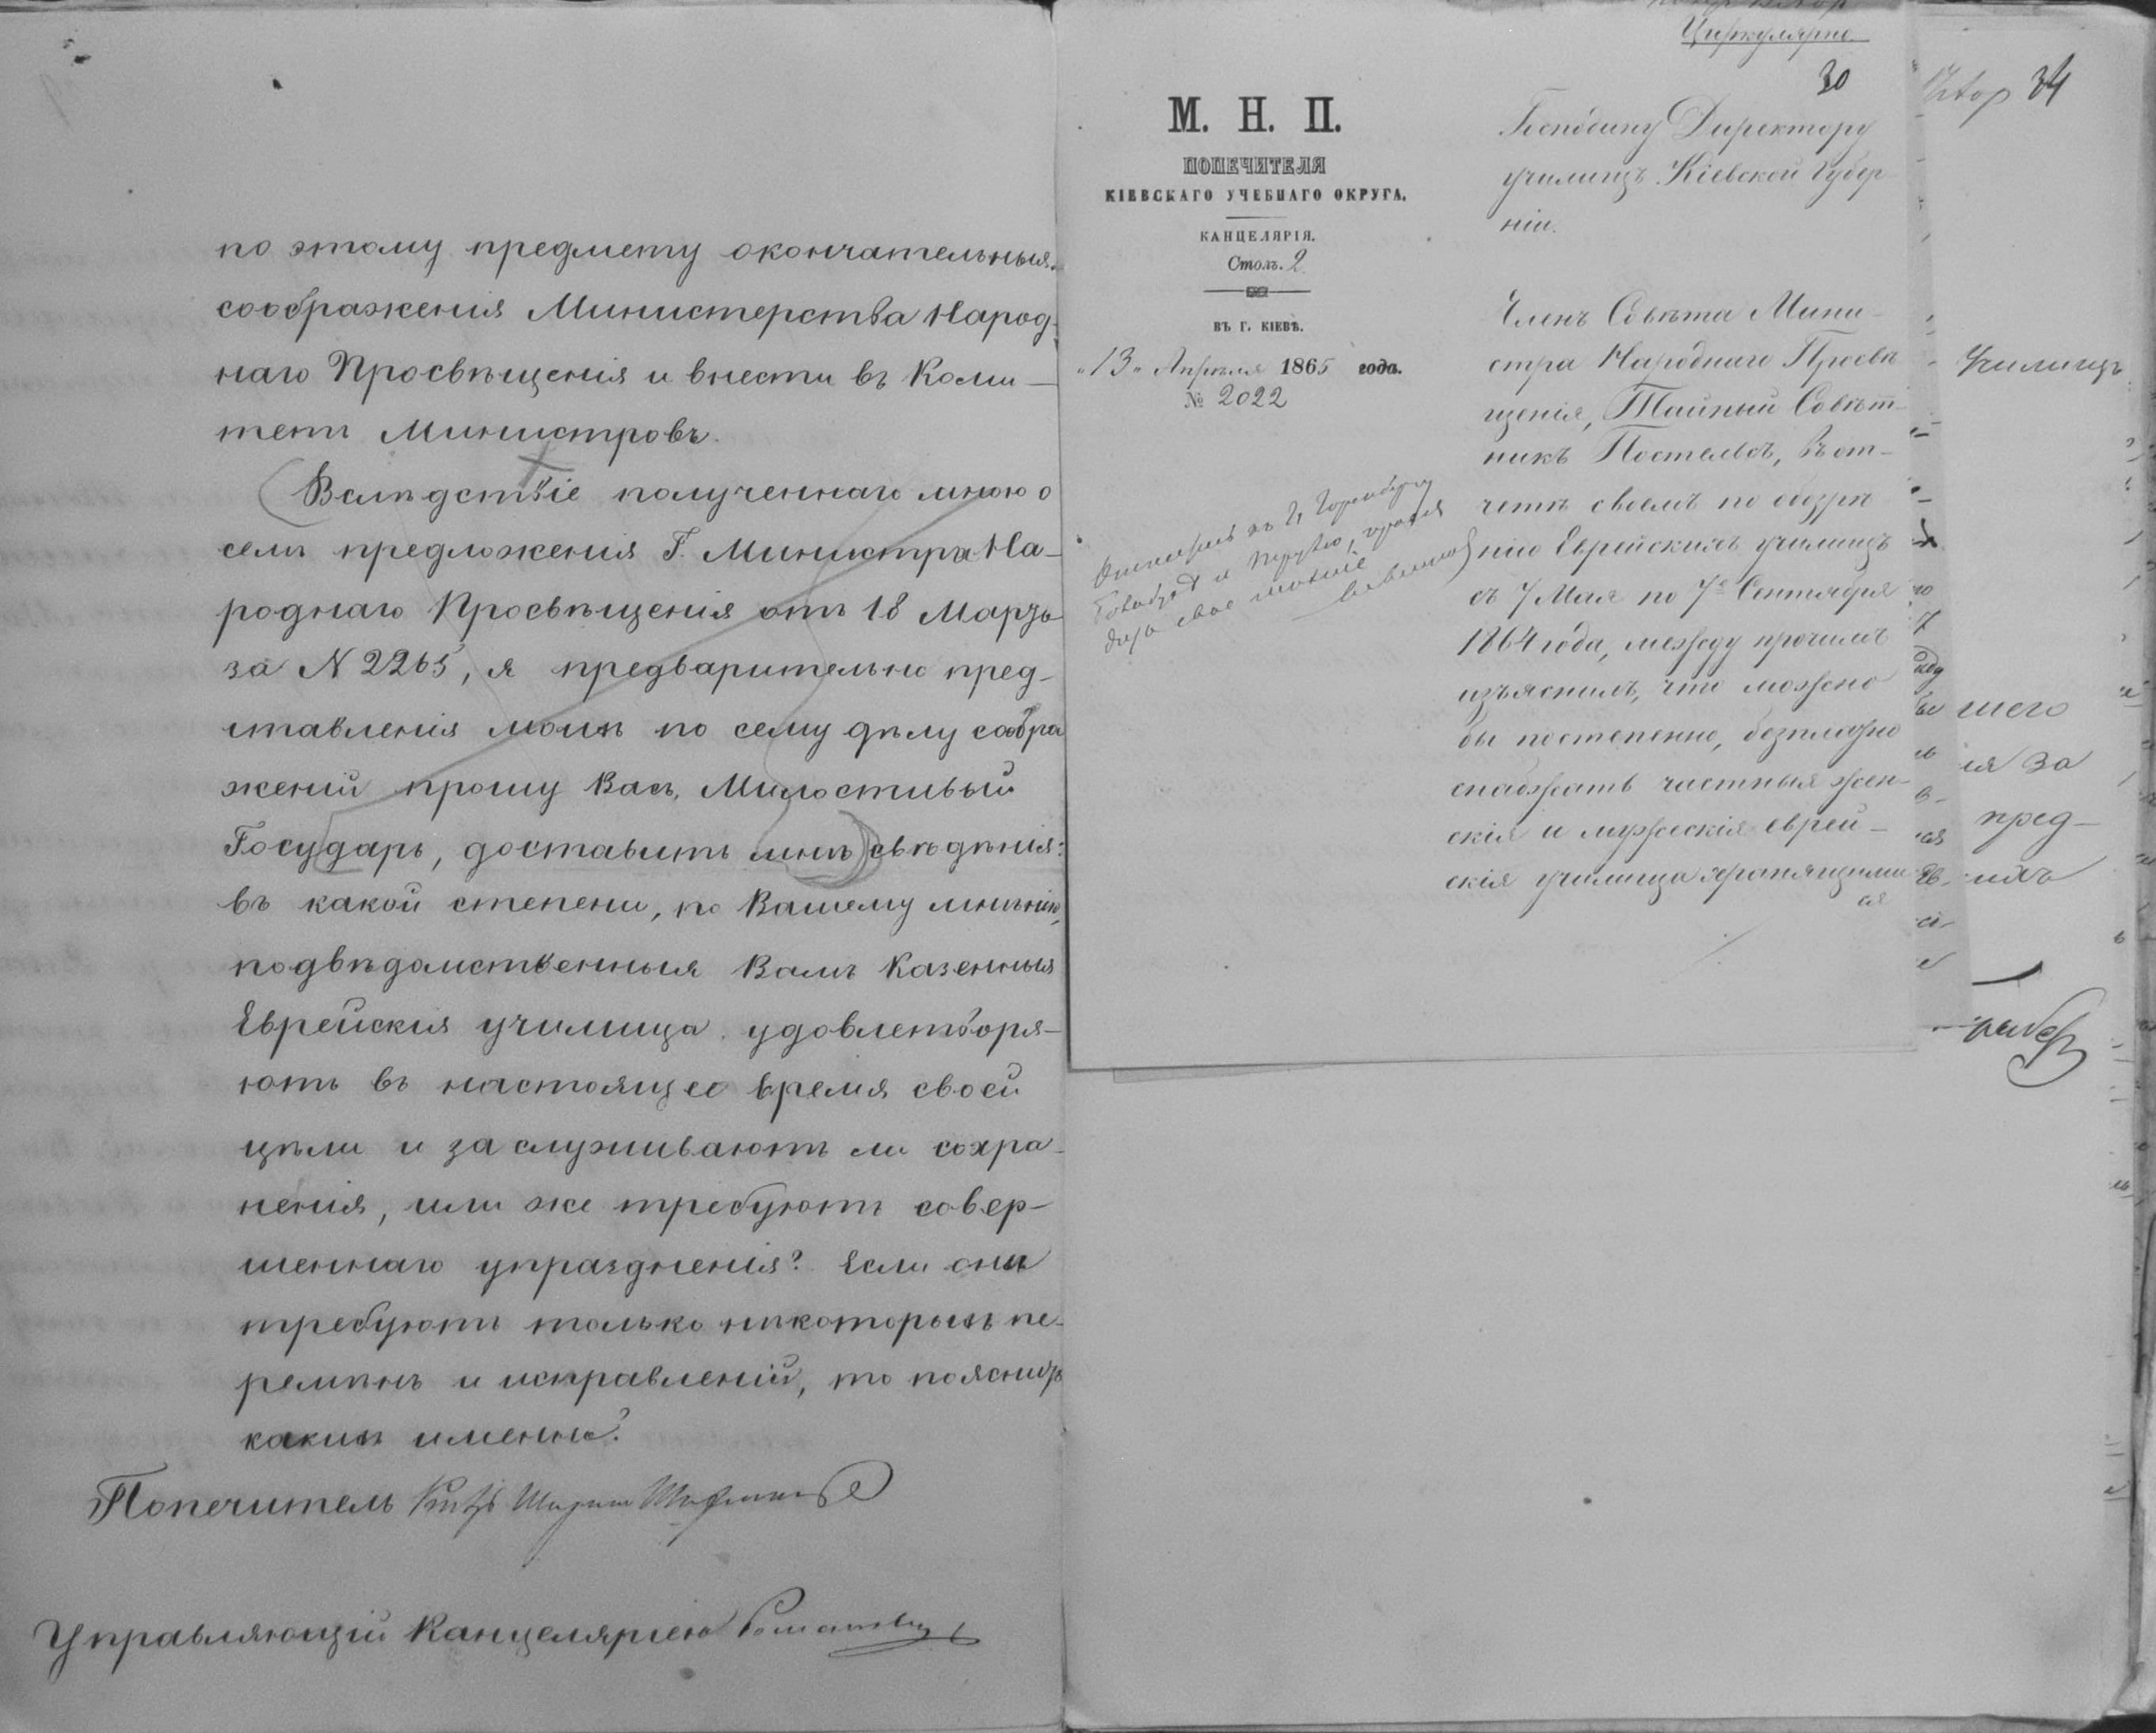 по этому предмету окончательныя
соображенія Министерства Народ-
наго Просвѣщенія и внести въ Коми-
тетъ Министровъ.
Вслѣдствіе полученнаго мною о
семъ предложенія Г. Министра На-
роднаго Просвѣщенія отъ 18 Марта
за N 2265, я предварительно пред-
ставленія моихъ по сему дѣлу сообра
женій прошу Васъ, Милостивый
Государь, доставить мнѣ свѣдѣнія:
въ какой степени, по Вашему мнѣнію,
подвѣдомственныя Вамъ Казенныя
Еврейскія училища удовлетворя-
ютъ въ настоящее время своей
цѣли и заслуживаютъ ли сохра-
ненія, или же требуютъ совер-
шеннаго упраздненія? Если они
требуютъ только нѣкоторыхъ пе-
ремѣнъ и исправленій, то пояснить
какихъ именно?
Попечитель
Управляющій Канцеляріею
Циркулярно
30
М. Н. П.
ПОПЕЧИТЕЛЯ
КІЕВСКАГО УЧЕБНАГО ОКРУГА.
КАНЦЕЛЯРІЯ.
Столъ. 2
ВЪ Г. КІЕВѢ.
"13" Апрѣля 1865 года.
№ 2022
Господину Директору
училищъ Кіевской Губер
ніи.
Членъ Совѣта Мини-
стра Народнаго Просвѣ
щенія, Тайный Совѣт-
никъ Постельсъ, въ от-
четѣ своемъ по обозрѣ
нію Еврейскихъ училищъ
съ 7 Мая по 7е Сентября
1864 года, между прочимъ
изъяснилъ, что можно
бы постепенно, безплатно
снабжать частныя жен-
скія и мужескія еврей-
скія училища хранящими
ся
свое мнѣніе
34
Училищъ
шего
ія за
пред-
ихъ